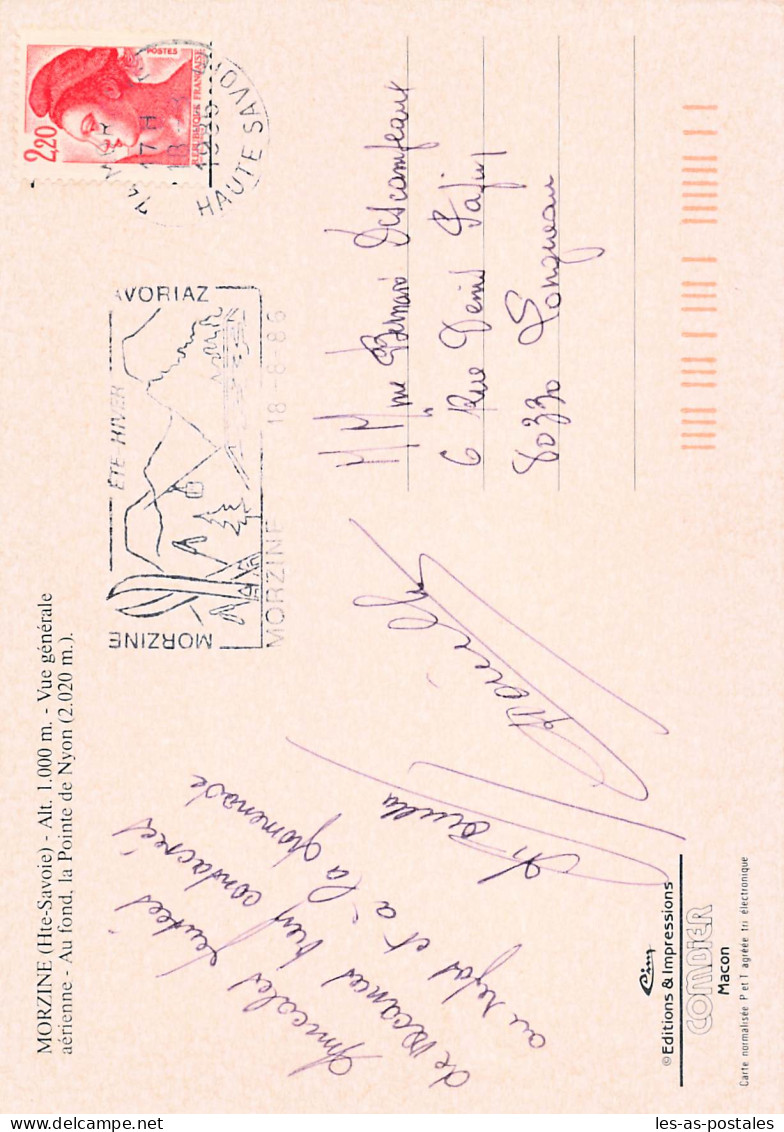 MORZINE (Hte-Savoie) - Alt. 1.000 m. - Vue générale
aérienne - Au fond, la Pointe de Nyon (2.020 m.).
Amicales pensées
de vacances bien consacrées
au repos et à la promenade
POSTES
REPUBLIQUE FRANÇAISE
2,20
74 MORZINE
17 H
18 - 8
1986
HAUTE SAVOIE
AVORIAZ
ÉTÉ-HIVER
MORZINE
MORZINE 18-8-86
M Mme Bernard Descampeaux
6 Rue Denis Papin
80330 Longueau
© Editions & Impressions
COMBIER
Macon
Carte normalisée P et T agréée tri électronique
les-as-postales